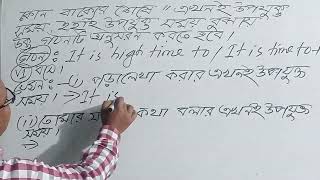 কোন বাক্যের শেষে "এখনই উপযুক্ত
সময়" হতাই উপযুক্ত সময় বুঝায়
উক্ত গঠনটি অনুসরণ করতে হবে।
গঠন: It is high time to / It is time to+
V1 বসে।
যেমন: - (i) পড়ালেখা করার এখনই উপযুক্ত
সময়। → It is
(ii) তোমার কথা বলার এখনই উপযুক্ত
সময়।
→